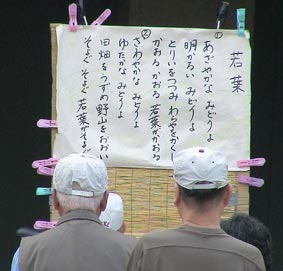 若葉
①
あざやかな みどりよ
明かるい みどりよ
とりいをつつみ わらやをかくし
かおる かおる 若葉がかおる
②
さわやかな みどりよ
ゆたかな みどりよ
田畑をうずめ野山をおおい
そよぐ そよぐ 若葉がそよぐ